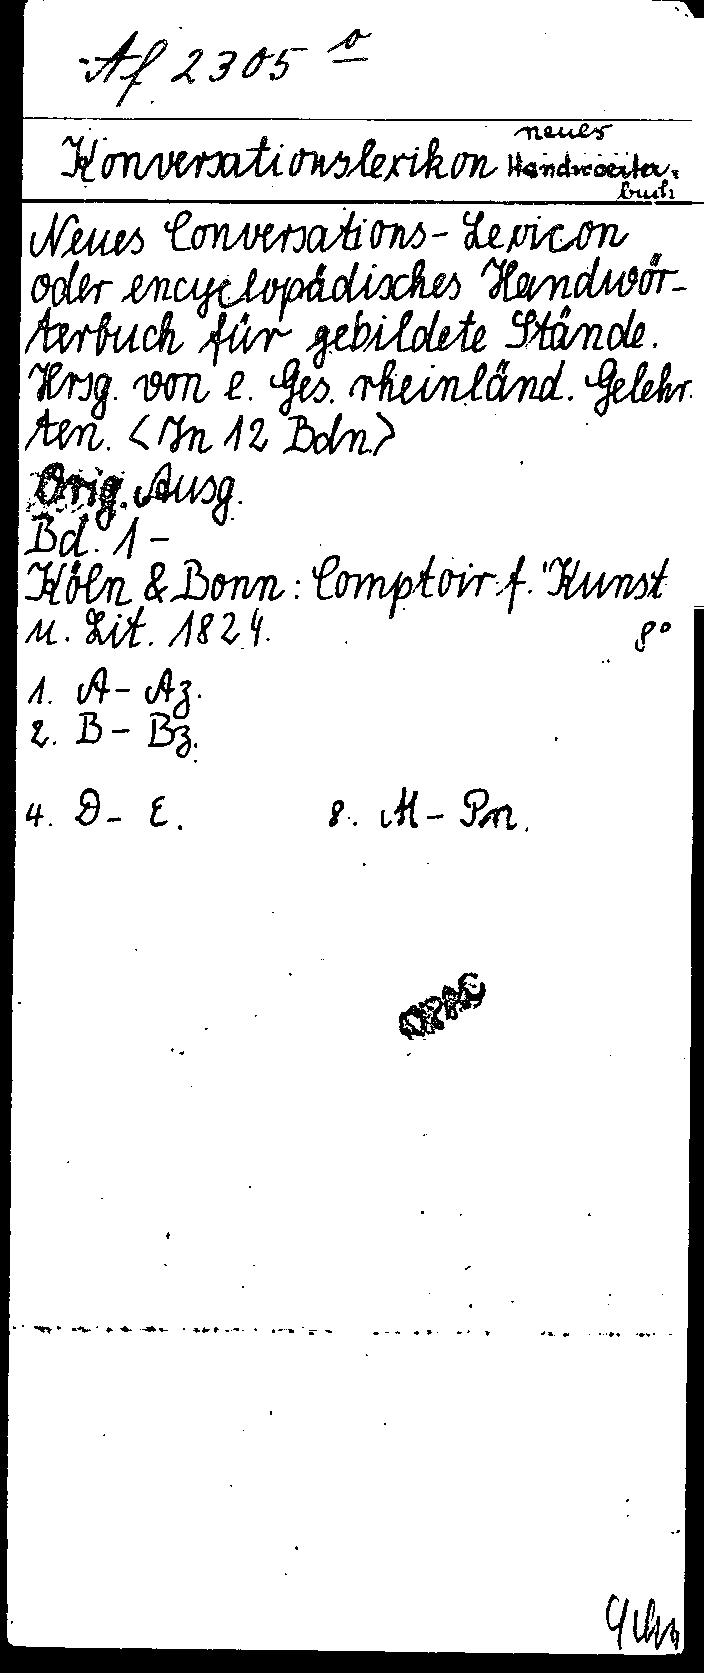 Af 2305 o
Konversationslexikon neues Handwoerter=
buch
Neues Conversations-Lexicon
oder encyclopädisches Handwör-
terbuch für gebildete Stände.
Hrsg. von e. Ges. rheinländ. Gelehr.
ten. <In 12 Bdn>
Orig. Ausg.
Bd. 1-
Köln & Bonn: Comptoir f. Kunst
u. Lit. 1824. 8°
1. A- Az.
2. B- Bz.
4. D- E. 8. M- Pn.
OPAC